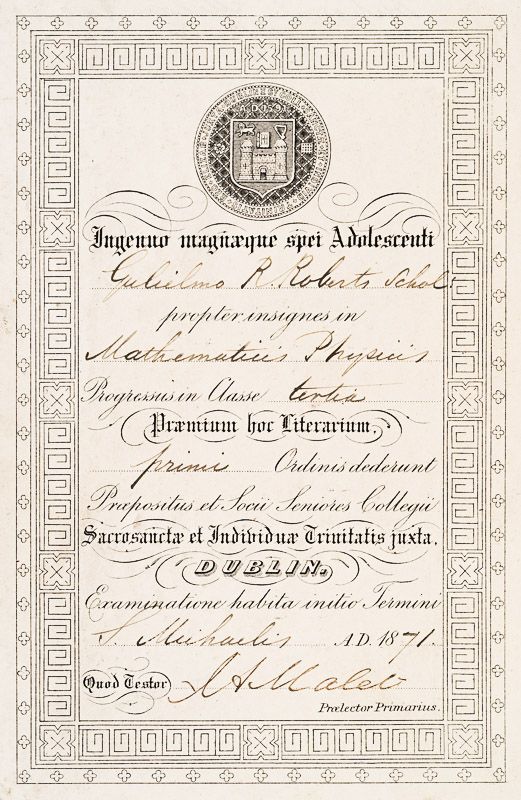 Ingenuo magnæque spei Adolescenti
Gulielmo R. Roberts Schol.
propter insignes in
Mathematicis Physicis
Progressus in Classe tertia
Præmium hoc Literarium,
primi Ordinis dederunt
Præpositus et Socii Seniores Collegii
Sacrosanctæ et Individuæ Trinitatis juxta,
DUBLIN,
Examinatione habita initio Termini
S. Michaelis A.D. 1871.
Quod Testor
Prælector Primarius.